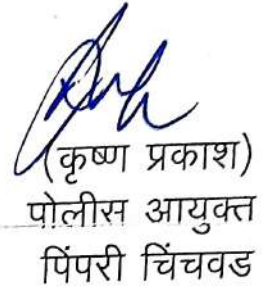 (कृष्ण प्रकाश)
पोलीस आयुक्त
पिंपरी चिंचवड